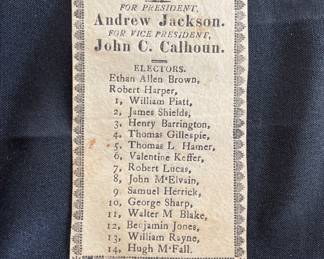 FOR PRESIDENT,
Andrew Jackson.
FOR VICE PRESIDENT,
John C. Calhoun.
ELECTORS.
Ethan Allen Brown,
Robert Harper,
1, William Piatt,
2, James Shields,
3, Henry Barrington,
4, Thomas Gillespie,
5, Thomas L Hamer,
6, Valentine Keffer,
7, Robert Lucas,
8, John M'Elvain,
9 Samuel Herrick,
10, George Sharp,
11, Walter M Blake,
12, Benjamin Jones,
13, William Rayne,
14, Hugh M'Fall.